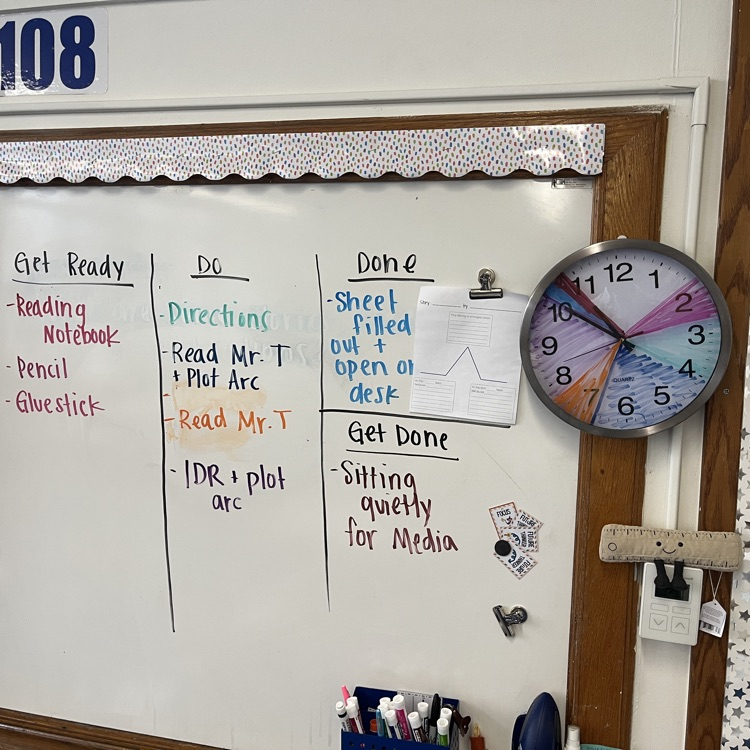 108
Get Ready
-Reading
Notebook
- Pencil
- Gluestick
Do
-Directions
-Read Mr. T
+ Plot Arc
- Read Mr. T
- IDR + plot
arc
Done
-Sheet
filled
out +
open on
desk
Get Done
-Sitting
quietly
for Media
12
1
2
3
4
5
6
7
8
9
10
11
QUARTZ
FOCUS
FUTURE